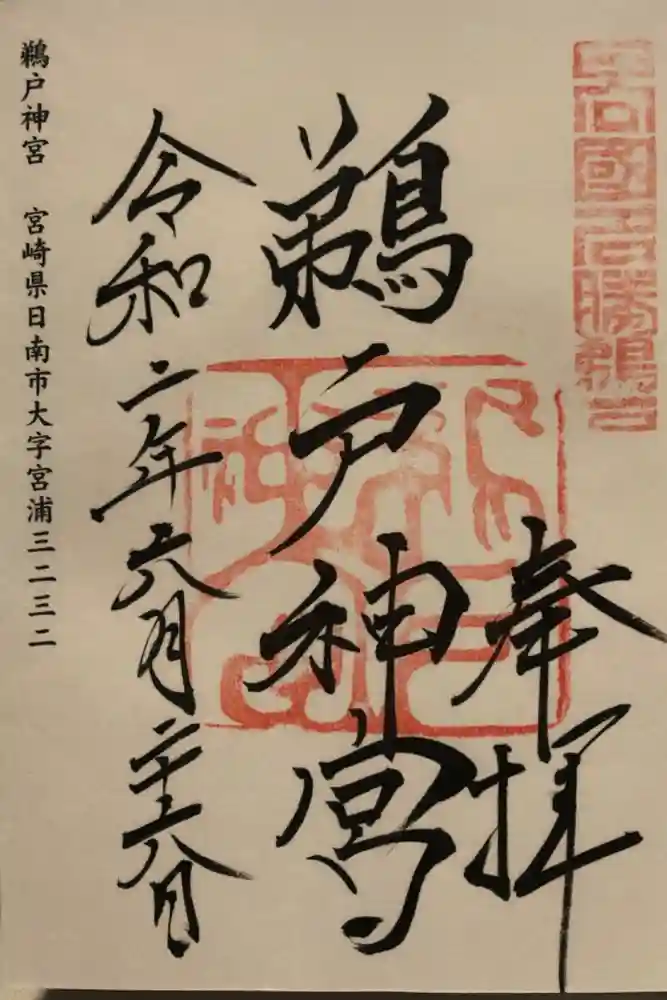 日向國名勝鵜戸
奉拝
鵜戸神宮
令和二年六月二十六日
鵜戸神宮　宮崎県日南市大字宮浦三二三二